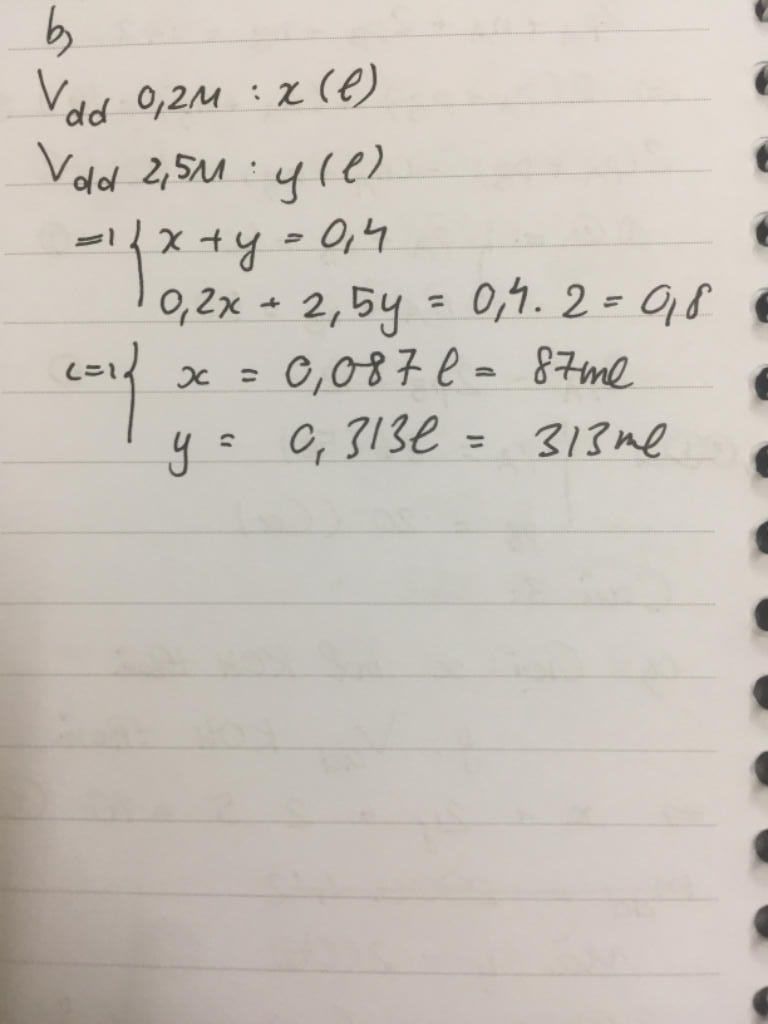 b,
Vdd 0,2M : x (l)
Vdd 2,5M : y (l)
=> { x + y = 0,4
0,2x + 2,5y = 0,4. 2 = 0,8
<=> { x = 0,087 l = 87ml
y = 0,313l = 313ml